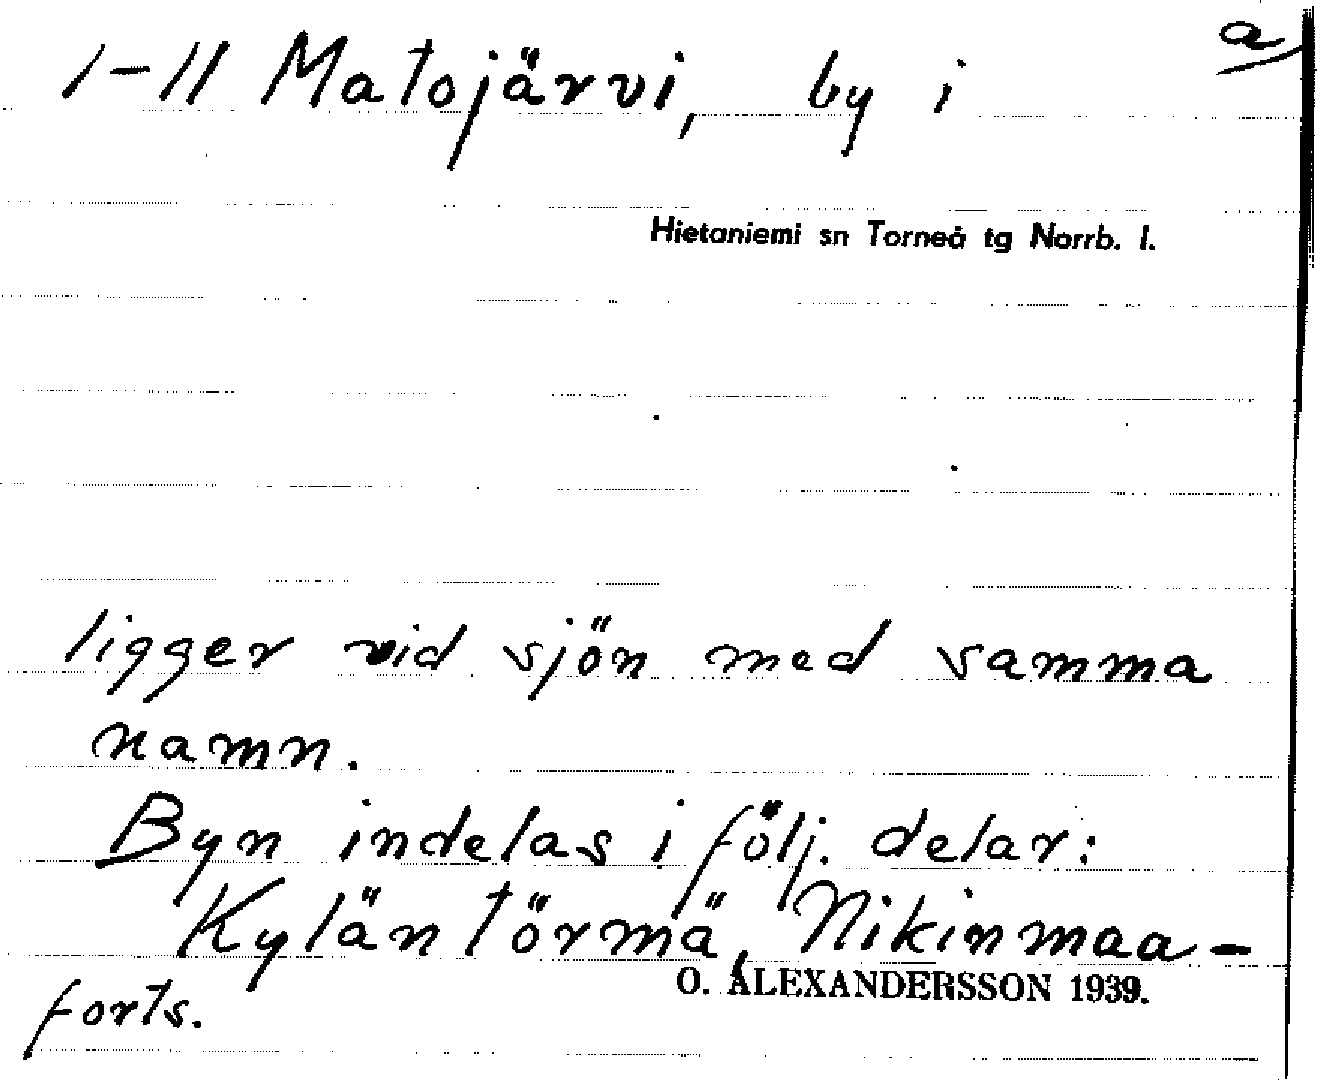 a
I-II Matojärvi, by i
Hietaniemi sn Torneå tg Norrb. l.
ligger vid sjön med samma
namn.
Byn indelas i följ. delar:
Kyläntörmä, Nikinmaa-
O. ALEXANDERSSON 1939.
forts.